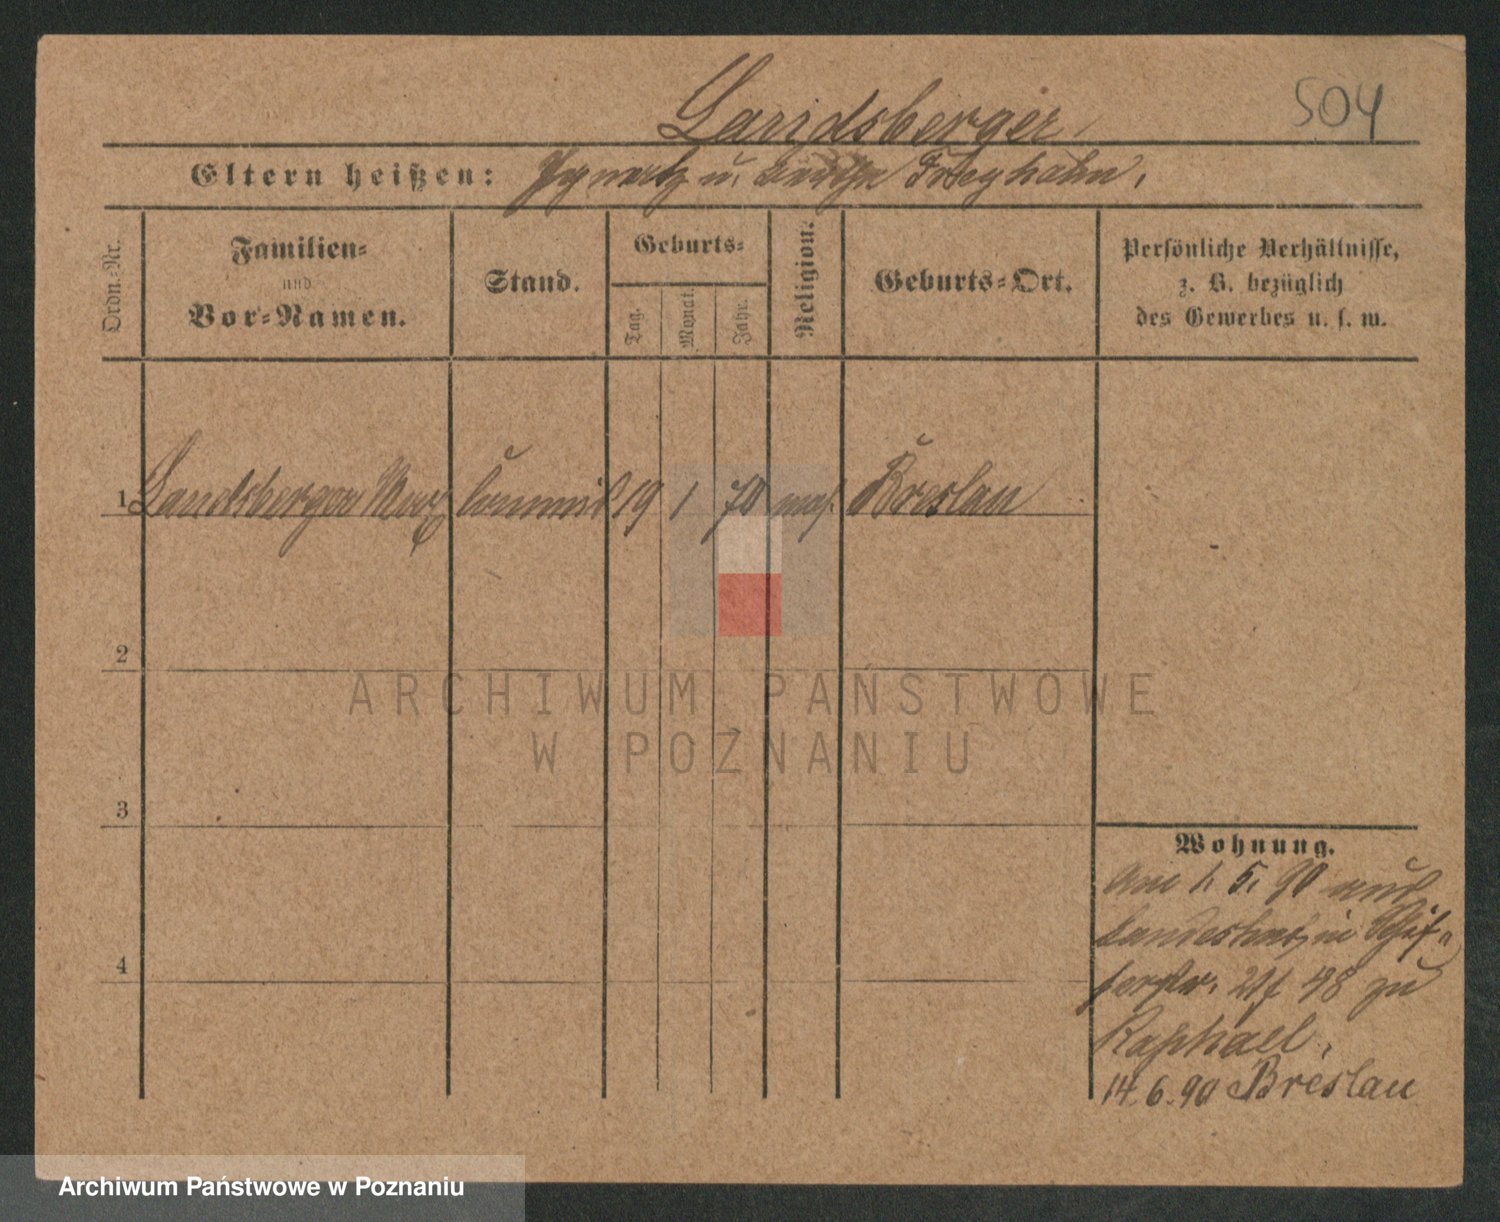 504
Landsberger
Eltern heißen: Ignatz u.
Ordn.-Nr.
Familien-
und
Vor-Namen.
Stand.
Geburts-
Tag.
Monat.
Jahr.
Religion.
Geburts-Ort.
Persönliche Verhältnisse,
z. B. bezüglich
des Gewerbes u. s. w.
1 Landsberger Max Commis 19 1 70 mos. Breslau
2
3
4
Wohnung.
Am 1. 5. 90 aus
Landeshut in Schif-
ferstr. 48 zu
Raphael.
14.6.90 Breslau
ARCHIWUM PAŃSTWOWE
W POZNANIU
Archiwum Państwowe w Poznaniu